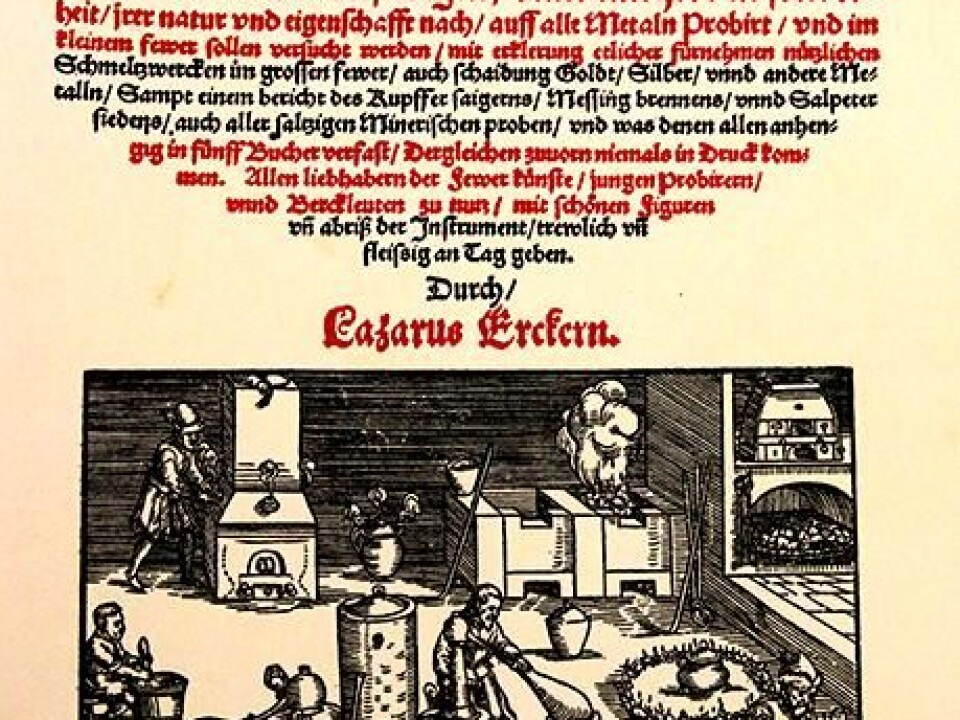 heit/ jrer natur vnd eigenschafft nach/ auff alle Metaln Probirt / vnd im
kleinem fewer sollen versucht werden/ mit erklerung etlicher fürnehmen nützlichen
Schmeltzwercken im grossen fewer/ auch schaidung Goldt/ Silber/ vnnd andere Me-
talln/ Sampt einem bericht des Kupffer saigerns/ Messing brennens/ vnnd Salpeter
siedens/ auch aller saltzigen Minerischen proben/ vnd was denen allen anhen-
gig in fünff Bucher verfast/ Dergleichen zuuorn niemals in Druck kom-
men. Allen liebhabern der Fewer künste/ jungen Probirern/
vnnd Berckleuten zu nutz/ mit schönen Figuren
vñ abriß der Instrument/ trewlich vñ
fleissig an Tag geben.
Durch/
Lazarus Erckern.